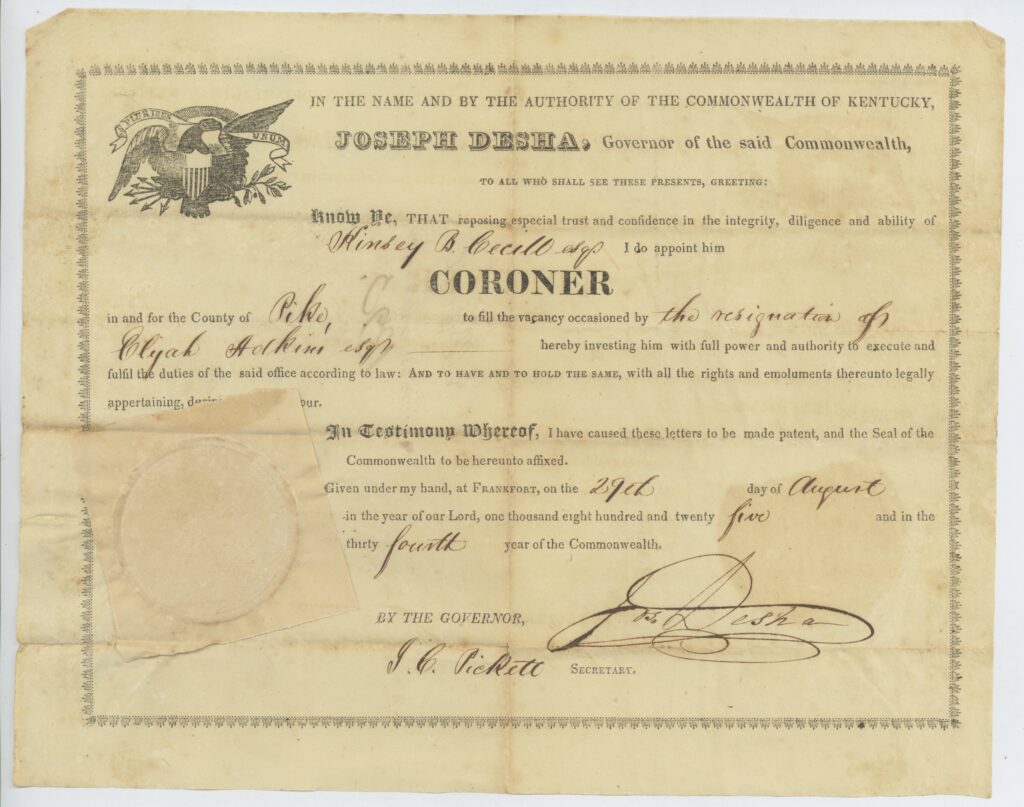 E PLURIBUS UNUM
IN THE NAME AND BY THE AUTHORITY OF THE COMMONWEALTH OF KENTUCKY,
JOSEPH DESHA, Governor of the said Commonwealth,
TO ALL WHO SHALL SEE THESE PRESENTS, GREETING:
Know Ye, THAT reposing especial trust and confidence in the integrity, diligence and ability of
Kinsey B. Cecill esqr I do appoint him
CORONER
in and for the County of Pike, to fill the vacancy occasioned by the resignation of
Elijah Adkins esqr hereby investing him with full power and authority to execute and
fulfil the duties of the said office according to law: AND TO HAVE AND TO HOLD THE SAME, with all the rights and emoluments thereunto legally
appertaining, our.
In Testimony Whereof, I have caused these letters to be made patent, and the Seal of the
Commonwealth to be hereunto affixed.
Given under my hand, at FRANKFORT, on the 29th day of August
in the year of our Lord, one thousand eight hundred and twenty five and in the
thirty fourth year of the Commonwealth.
Jos. Desha
BY THE GOVERNOR,
J. C. Pickett SECRETARY.